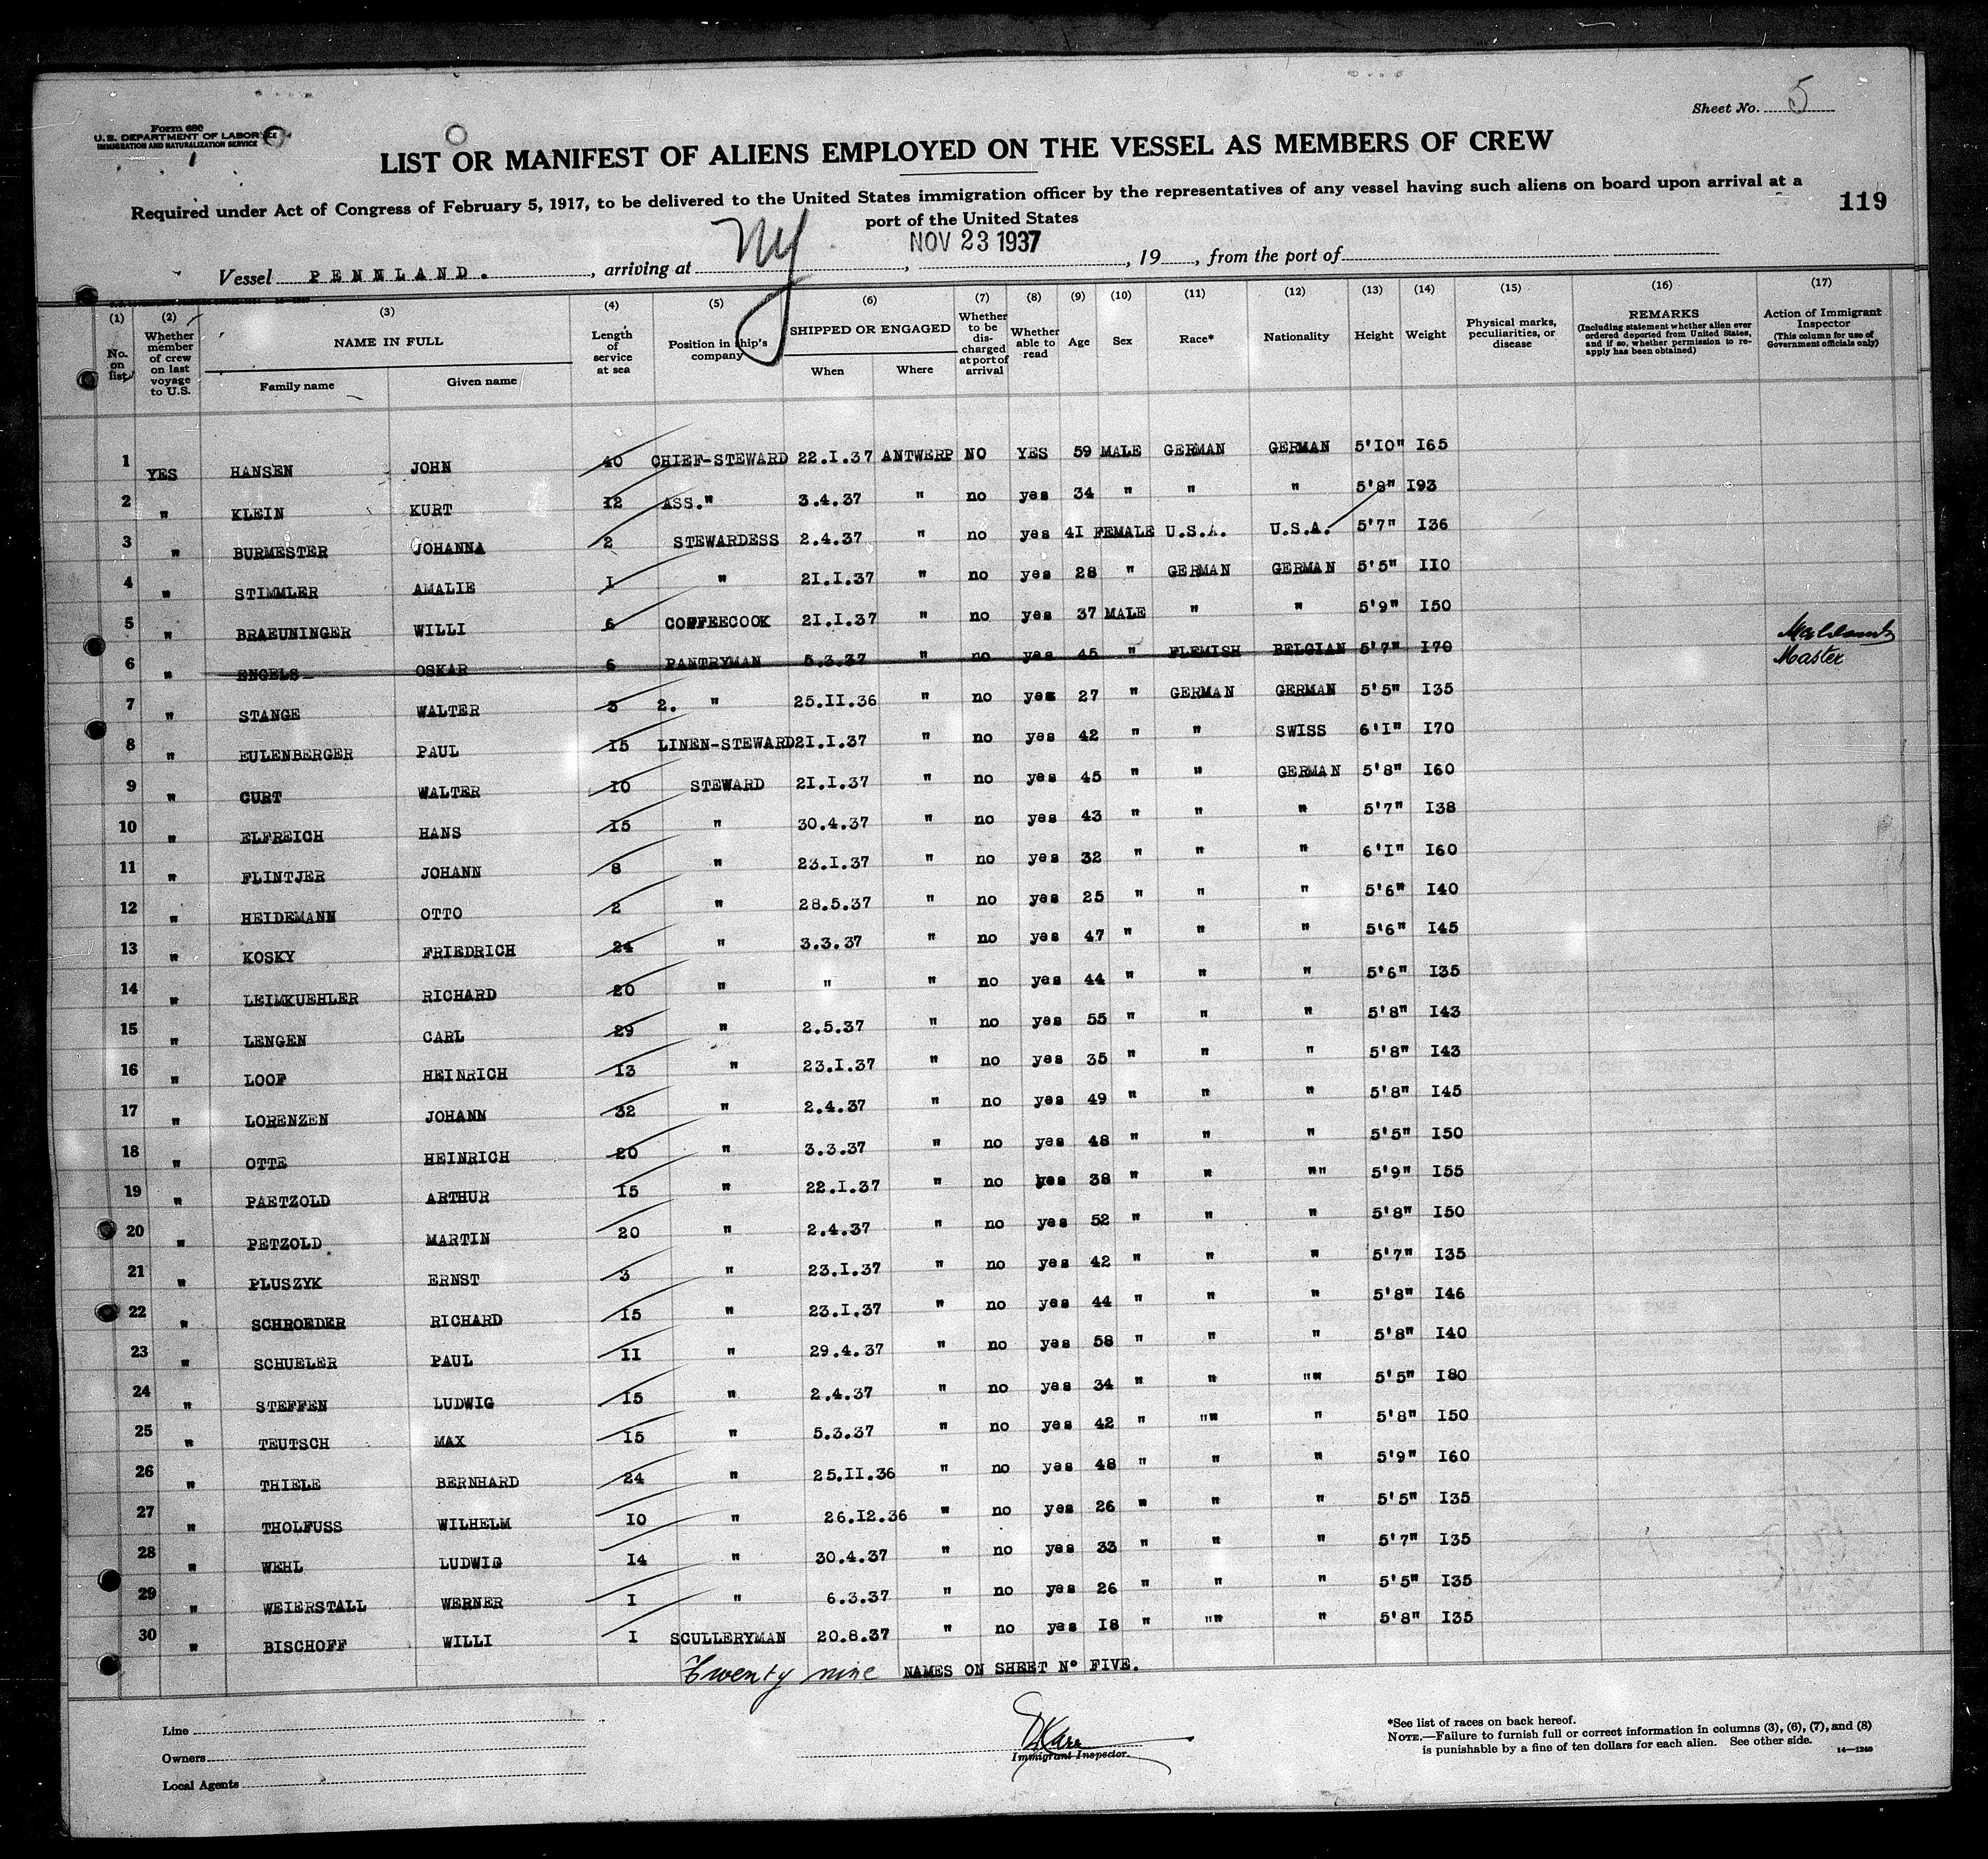 Sheet No. 5
Form 680
U.S. DEPARTMENT OF LABOR
IMMIGRATION AND NATURALIZATION SERVICE
LIST OR MANIFEST OF ALIENS EMPLOYED ON THE VESSEL AS MEMBERS OF CREW
Required under Act of Congress of February 5, 1917, to be delivered to the United States immigration officer by the representatives of any vessel having such aliens on board upon arrival at a
port of the United States
119
Vessel PENNLAND. , arriving at NY , NOV 23 1937 , 19 , from the port of
(1) (2) (3) (4) (5) (6) (7) (8) (9) (10) (11) (12) (13) (14) (15) (16) (17)
No. on list
Whether member of crew on last voyage to U.S.
NAME IN FULL
Family name
Given name
Length of service at sea
Position in ship's company
SHIPPED OR ENGAGED
When
Where
Whether to be discharged at port of arrival
Whether able to read
Age
Sex
Race*
Nationality
Height
Weight
Physical marks, peculiarities, or disease
REMARKS
(Including statement whether alien ever ordered deported from United States, and if so, whether permission to reapply has been obtained)
Action of Immigrant Inspector
(This column for use of Government officials only)
1 YES HANSEN JOHN 40 CHIEF-STEWARD 22.I.37 ANTWERP NO YES 59 MALE GERMAN GERMAN 5'IO" I65
2 " KLEIN KURT I2 ASS." 3.4.37 " no yes 34 " " " 5'8" I93
3 " BURMESTER JOHANNA 2 STEWARDESS 2.4.37 " no yes 4I FEMALE U.S.A. U.S.A. 5'7" I36
4 " STIMMLER AMALIE I " 2I.I.37 " no yes 28 " GERMAN GERMAN 5'5" IIO
5 " BRAEUNINGER WILLI 6 COFFEECOOK 2I.I.37 " no yes 37 MALE " " 5'9" I50
6 " ENGELS OSKAR 6 PANTRYMAN 5.3.37 " no yes 45 " FLEMISH BELGIAN 5'7" I70 Master
7 " STANGE WALTER 3 2. " 25.II.36 " no yes 27 " GERMAN GERMAN 5'5" I35
8 " EULENBERGER PAUL I5 LINEN-STEWARD 2I.I.37 " no yes 42 " " SWISS 6'I" I70
9 " CURT WALTER IO STEWARD 2I.I.37 " no yes 45 " " GERMAN 5'8" I60
10 " ELFREICH HANS I5 " 30.4.37 " no yes 43 " " " 5'7" I38
11 " FLINTJER JOHANN 8 " 23.I.37 " no yes 32 " " " 6'I" I60
12 " HEIDEMANN OTTO 2 " 28.5.37 " no yes 25 " " " 5'6" I40
13 " KOSKY FRIEDRICH 24 " 3.3.37 " no yes 47 " " " 5'6" I45
14 " LEIMKUEHLER RICHARD 20 " " " no yes 44 " " " 5'6" I35
15 " LENGEN CARL 29 " 2.5.37 " no yes 55 " " " 5'8" I43
16 " LOOF HEINRICH I3 " 23.I.37 " no yes 35 " " " 5'8" I43
17 " LORENZEN JOHANN 32 " 2.4.37 " no yes 49 " " " 5'8" I45
18 " OTTE HEINRICH 20 " 3.3.37 " no yes 48 " " " 5'5" I50
19 " PAETZOLD ARTHUR I5 " 22.I.37 " no yes 38 " " "" 5'9" I55
20 " PETZOLD MARTIN 20 " 2.4.37 " no yes 52 " " " 5'8" I50
21 " PLUSZYK ERNST 3 " 23.I.37 " no yes 42 " " " 5'7" I35
22 " SCHROEDER RICHARD I5 " 23.I.37 " no yes 44 " " " 5'8" I46
23 " SCHUELER PAUL II " 29.4.37 " no yes 58 " " " 5'8" I40
24 " STEFFEN LUDWIG I5 " 2.4.37 " no yes 34 " " "" 5'5" I80
25 " TEUTSCH MAX I5 " 5.3.37 " no yes 42 " "" " 5'8" I50
26 " THIELE BERNHARD 24 " 25.II.36 " no yes 48 " " " 5'9" I60
27 " THOLFUSS WILHELM IO " 26.I2.36 " no yes 26 " " " 5'5" I35
28 " WEHL LUDWIG I4 " 30.4.37 " no yes 33 " " " 5'7" I35
29 " WEIERSTALL WERNER I " 6.3.37 " no yes 26 " " " 5'5" I35
30 " BISCHOFF WILLI I SCULLERYMAN 20.8.37 " no yes I8 " "" " 5'8" I35
Twenty nine NAMES ON SHEET No FIVE.
Line
Owners
Local Agents
Immigrant Inspector.
*See list of races on back hereof.
NOTE.—Failure to furnish full or correct information in columns (3), (6), (7), and (8)
is punishable by a fine of ten dollars for each alien. See other side.
14—1240